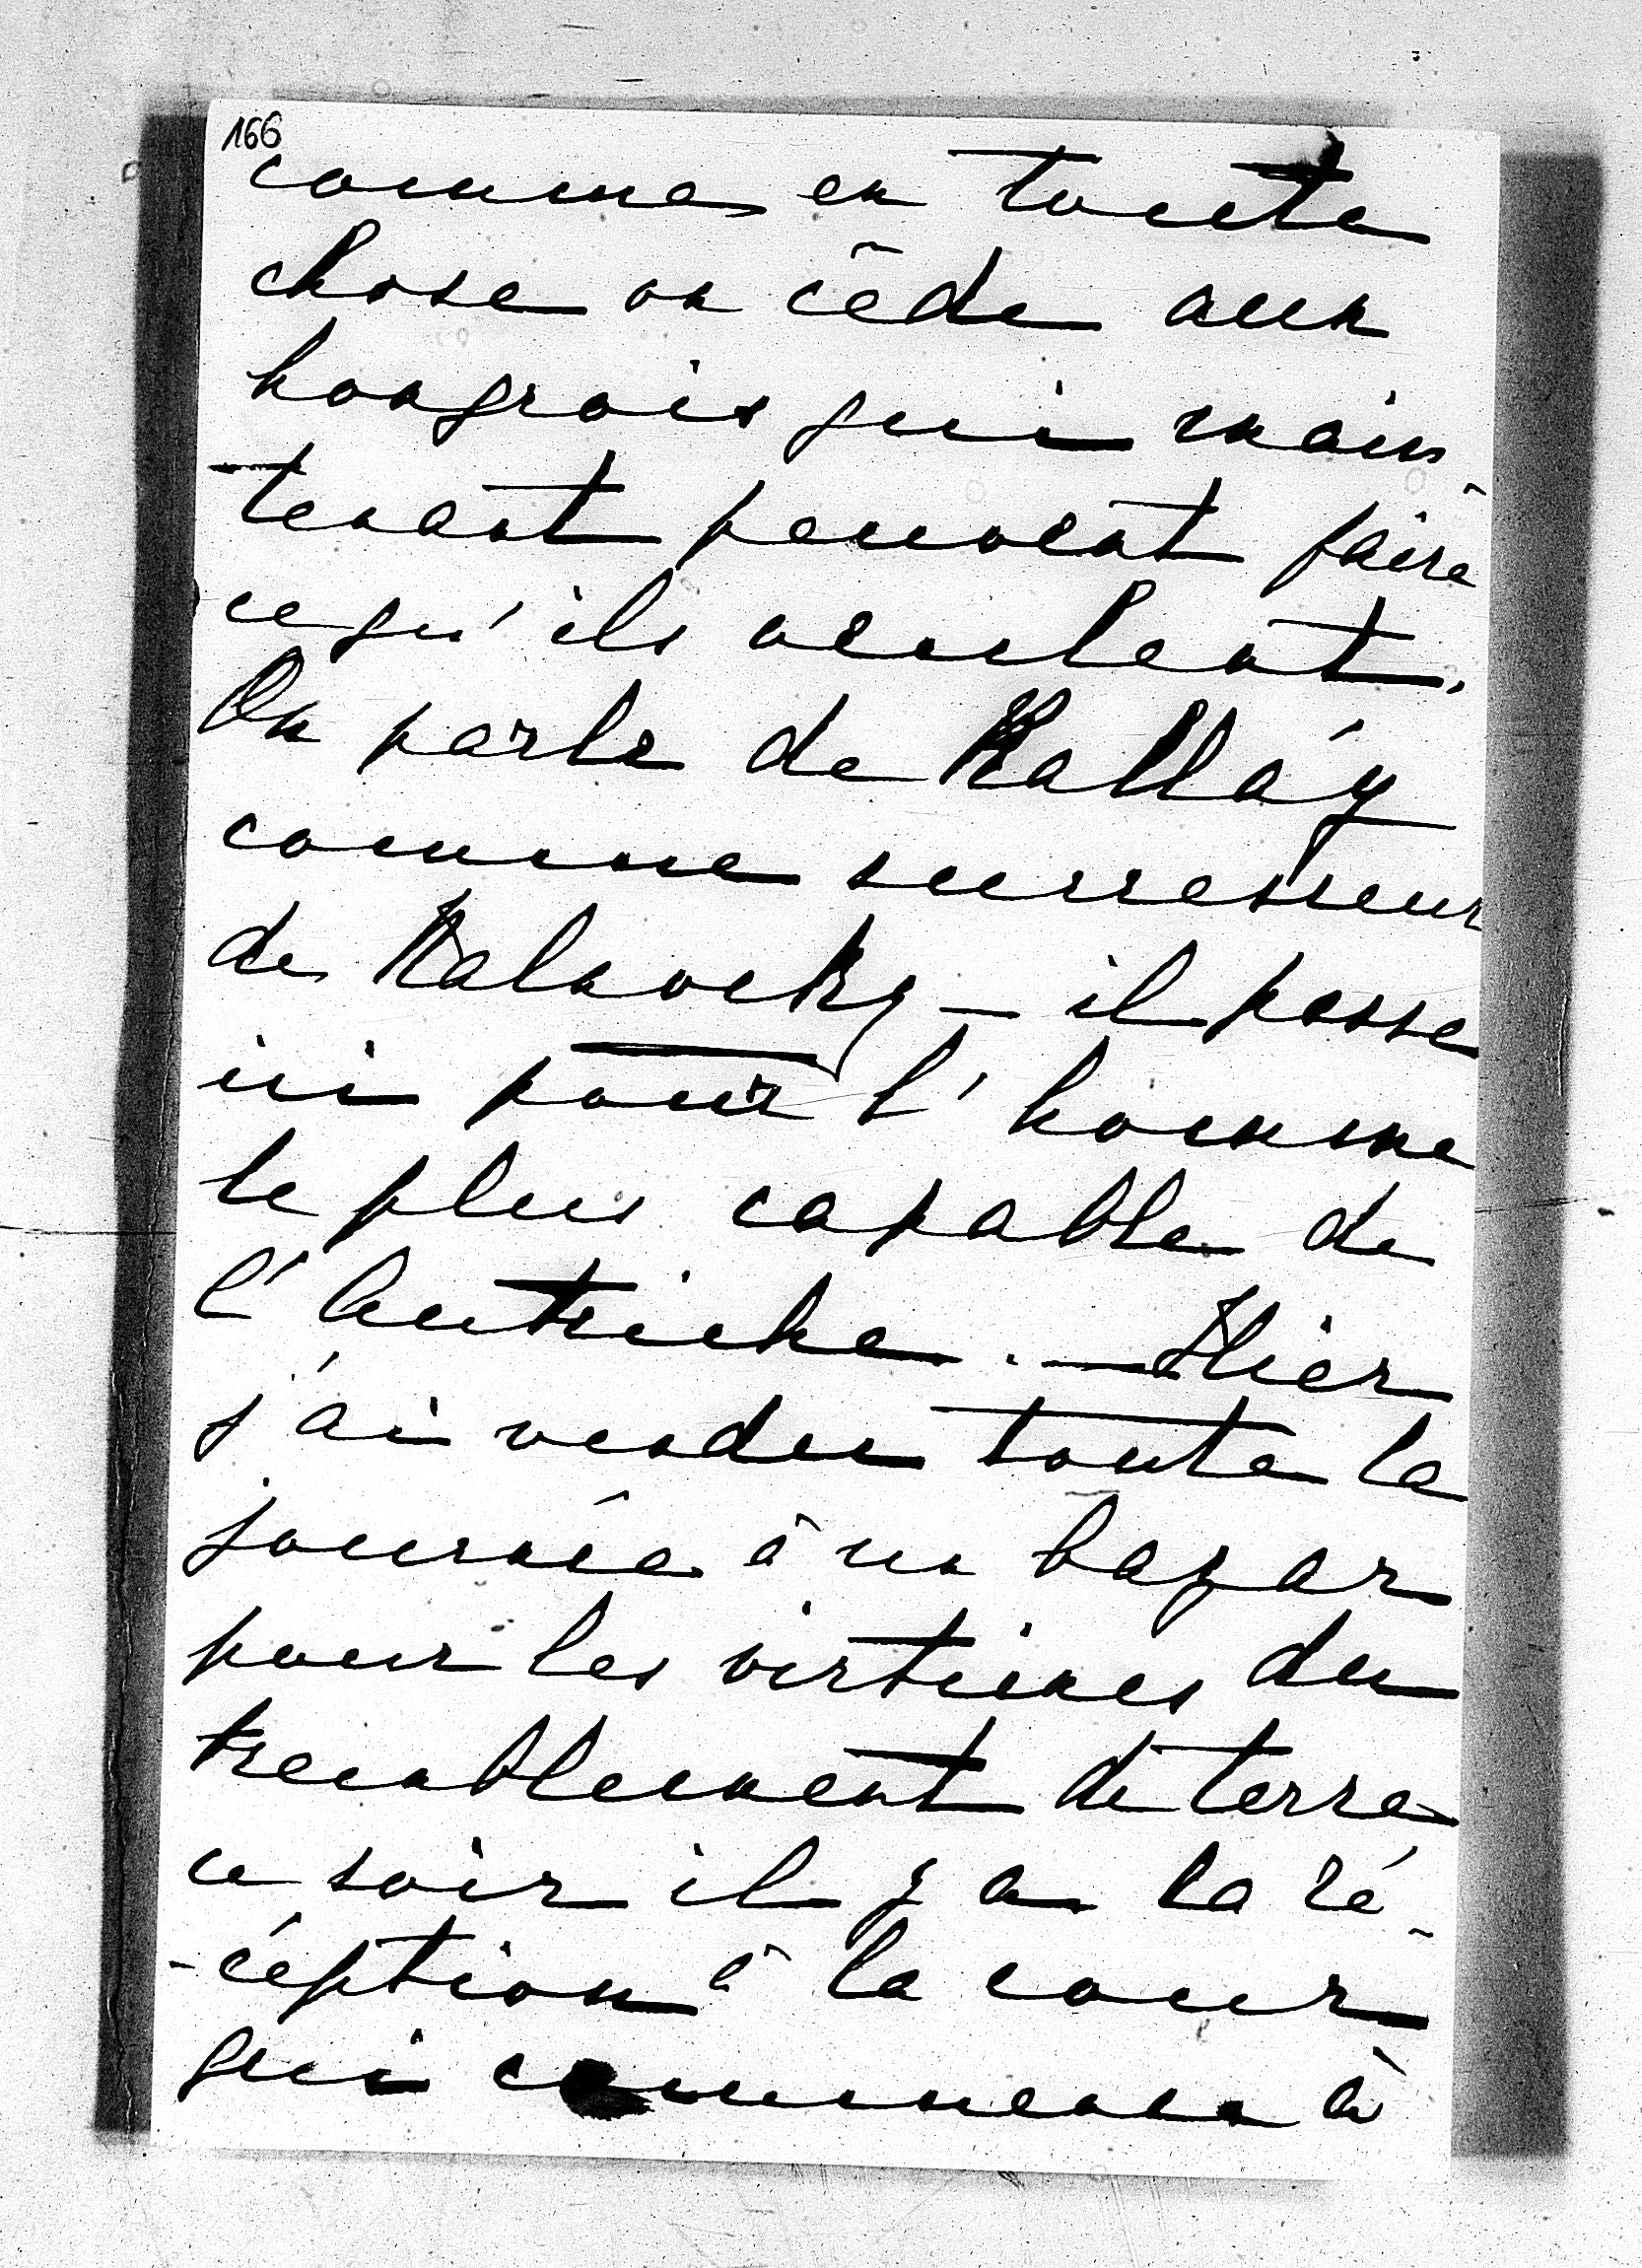 166
comme en toute
chose on cède aux
hongrois qui main-
tenant peuvent faire
ce qu'ils veulent.
On parle de Kalláy
comme successeur
de Kalnocky – il passe
ici pour l'homme
le plus capable de
l'Autriche. – Hier
j'ai vendu toute la
journée à un bazar
pour les victimes du
tremblement de terre
ce soir il y a la ré-
-céption à la cour
qui commence à